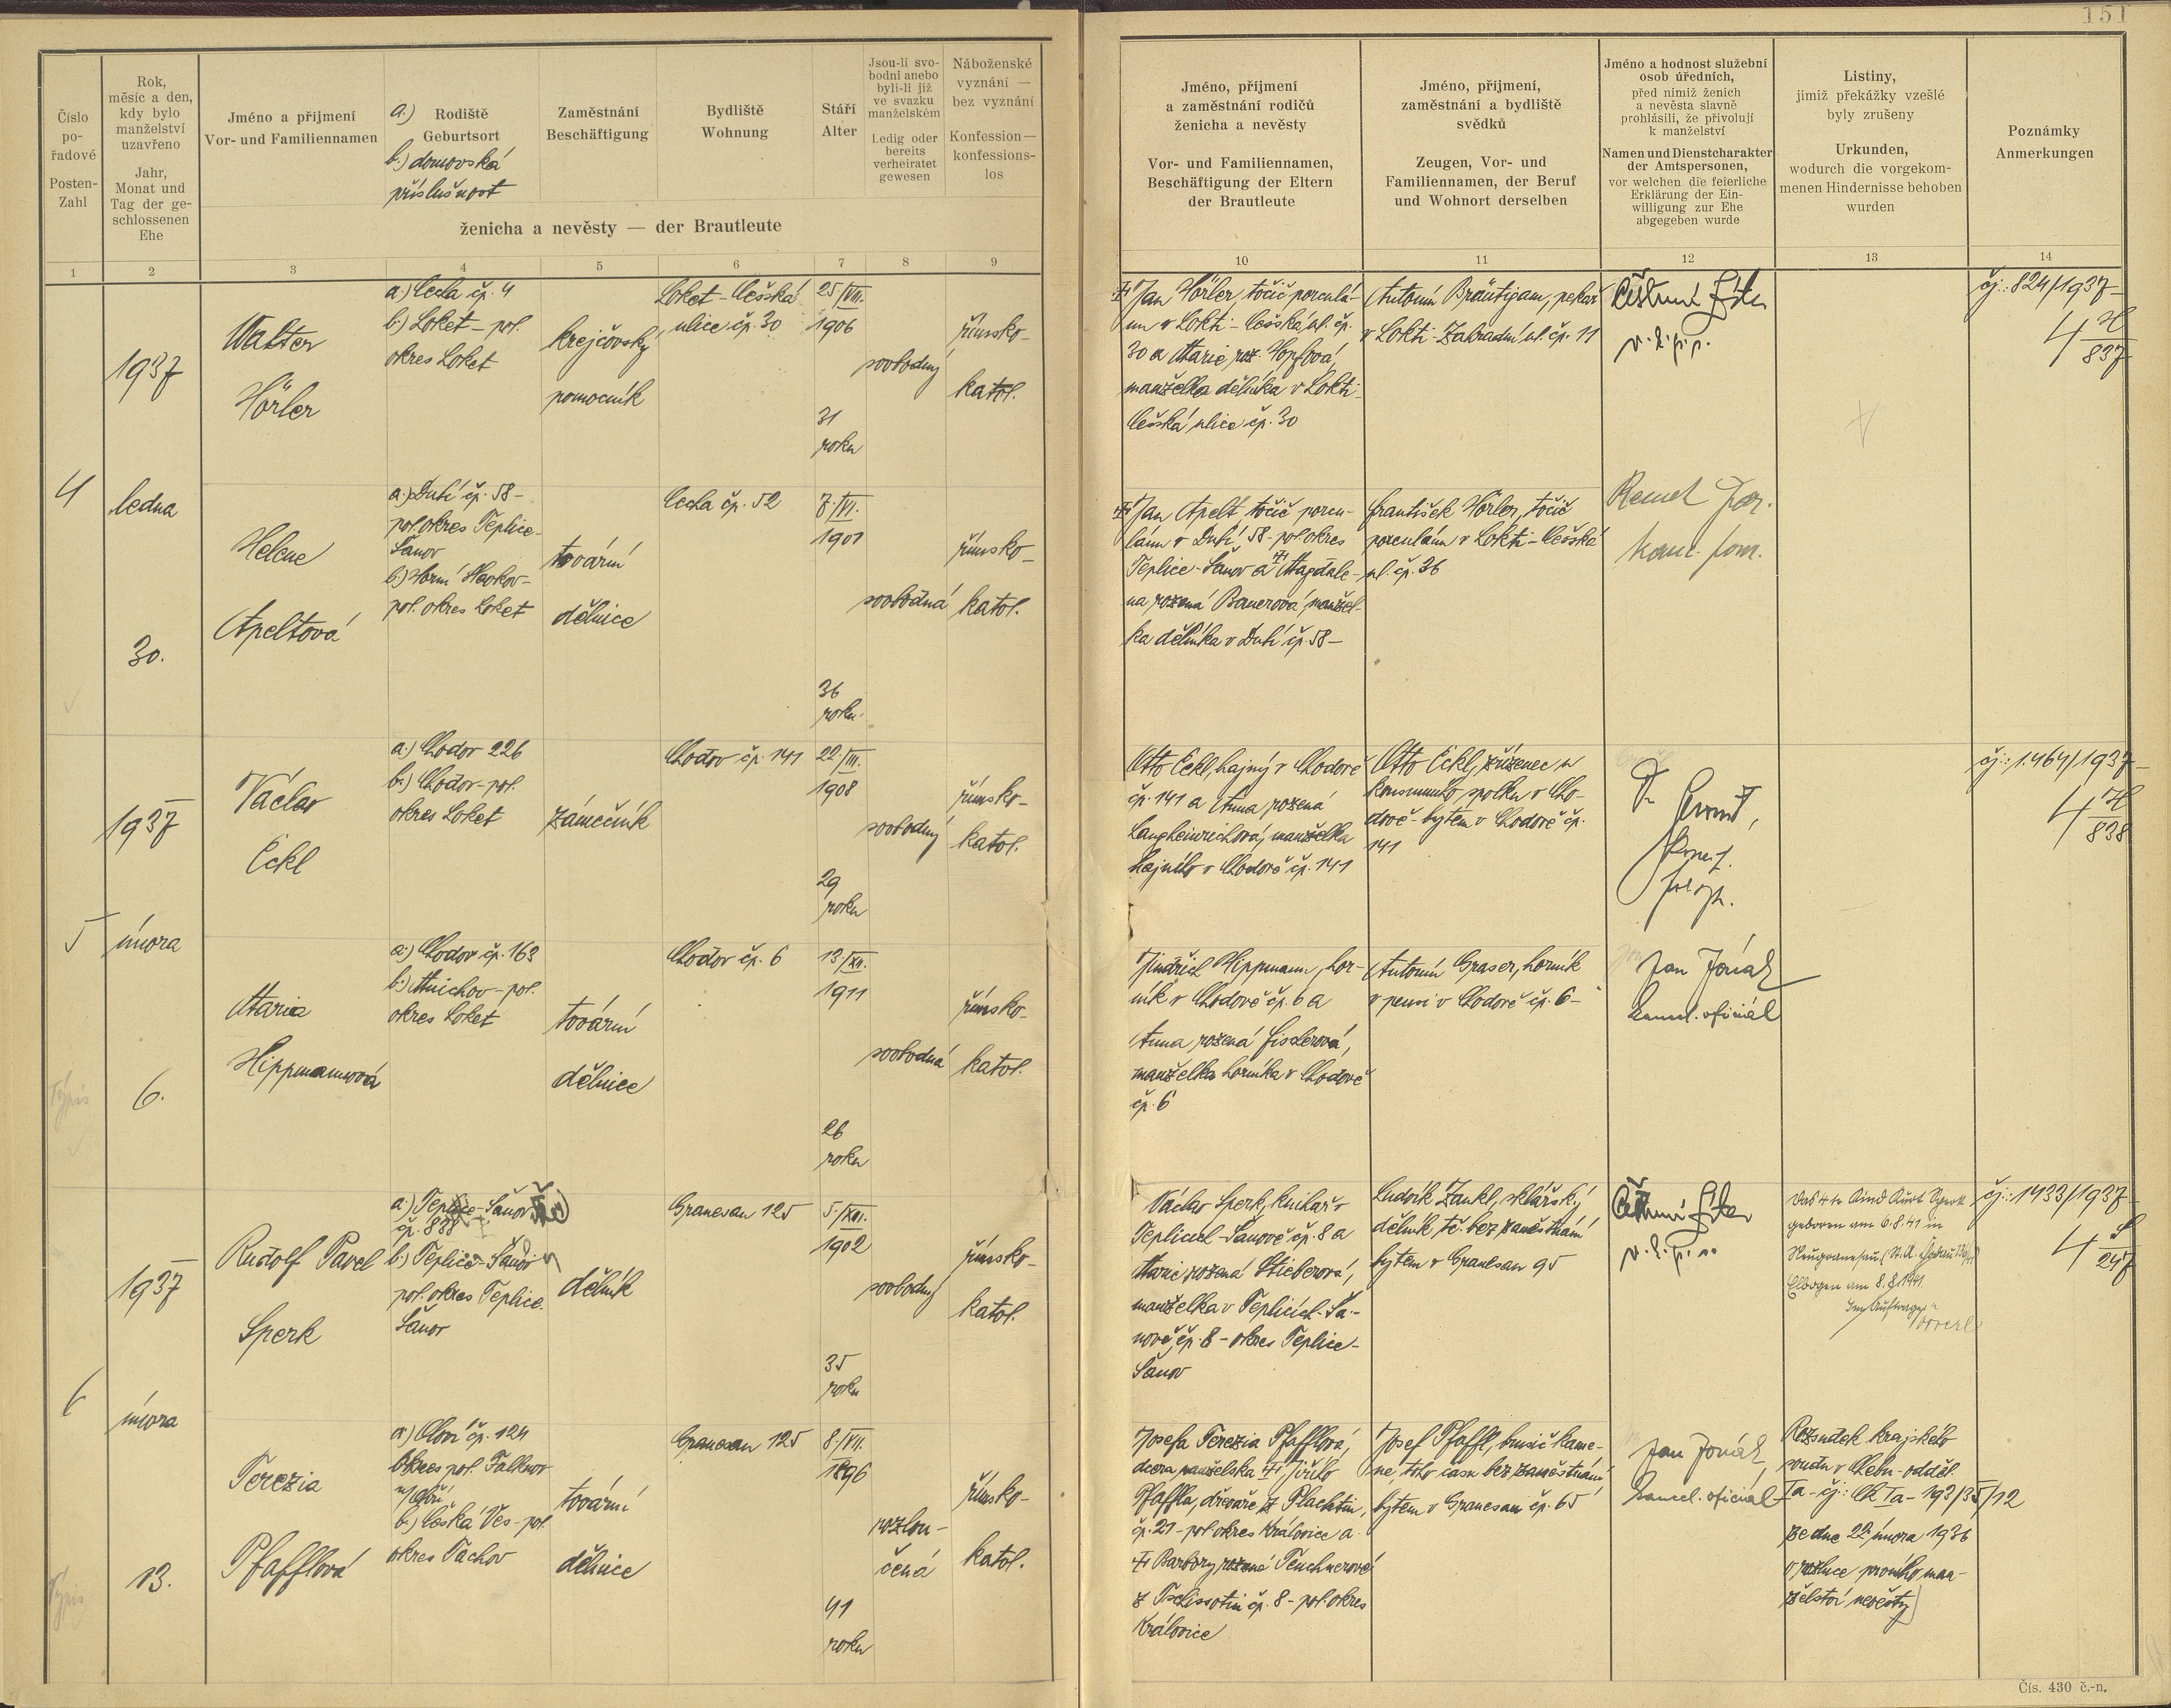 151
Číslo
po-
řadové
Posten-
Zahl
Rok,
měsíc a den,
kdy bylo
manželství
uzavřeno
Jahr,
Monat und
Tag der ge-
schlossenen
Ehe
Jméno a přijmení
Vor- und Familiennamen
a.) Rodiště
Geburtsort
b.) domovská
příslušnost
Zaměstnání
Beschäftigung
Bydliště
Wohnung
Stáří
Alter
Jsou-li svo-
bodni anebo
byli-li již
ve svazku
manželském
Ledig oder
bereits
verheiratet
gewesen
Náboženské
vyznání —
bez vyznání
Konfession —
konfessions-
los
ženicha a nevěsty — der Brautleute
Jméno, příjmení
a zaměstnání rodičů
ženicha a nevěsty
Vor- und Familiennamen,
Beschäftigung der Eltern
der Brautleute
Jméno, příjmení,
zaměstnání a bydliště
svědků
Zeugen, Vor- und
Familiennamen, der Beruf
und Wohnort derselben
Jméno a hodnost služební
osob úředních,
před nimiž ženich
a nevěsta slavně
prohlásili, že přivolují
k manželství
Namen und Dienstcharakter
der Amtspersonen,
vor welchen die feierliche
Erklärung der Ein-
willigung zur Ehe
abgegeben wurde
Listiny,
jimiž překážky vzešlé
byly zrušeny
Urkunden,
wodurch die vorgekom-
menen Hindernisse behoben
wurden
Poznámky
Anmerkungen
1 2 3 4 5 6 7 8 9 10 11 12 13 14
4
1937
ledna
30.
Walter
Hörler
a.) Cecha čp. 4
b.) Loket - pol.
okres Loket
krejčovský
pomocník
Loket - Češská
ulice čp. 30
25/VII.
1906
31
roku
svobodný
římsko-
katol.
Jan Hörler, točič porculá-
nu v Lokti - Češská ul. čp.
30 a Marie roz. Hopfová,
manželka dělníka v Lokti-
Češská ulice čp. 30
Antonín Bräutigam, pekař
v Lokti - Zahradní ul. čp. 11
v.z.p.p.
čj.: 824/1937-
4 H
837
Helene
Apeltová
a.) Dubí čp. 58-
pol. okres Teplice-
Šanov
b.) Horní Slavkov-
pol. okres Loket
tovární
dělnice
Cecha čp. 52
7./VI.
1901
36
roku
svobodná
římsko-
katol.
Jan Apelt, točič porcu-
lánu v Dubí 58 - pol. okres
Teplice - Šanov a Magdale-
na rozená Bauerová, manžel-
ka dělníka v Dubí čp. 58-
František Hörler, točič
porculánu v Lokti - Češská
ul. čp. 36
kanc. pom.
5
1937
února
6.
Výpis
Václav
Eckl
a.) Chodov 226
b.) Chodov - pol.
okres Loket
zámečník
Chodov čp. 141
22./III.
1908
29
roku
svobodný
římsko-
katol.
Otto Eckl, hajný v Chodově
čp. 141 a Anna rozená
Langheinrichová, manželka
hajného v Chodově čp. 141
Otto Eckl, zřízenec u
konsumního spolku v Cho-
dově - bytem v Chodově čp.
141
čj.: 1.464/1937-
4 H
838
Maria
Hippmannová
a.) Chodov čp. 163
b.) Mnichov - pol.
okres Loket
tovární
dělnice
Chodov čp. 6
13/XII.
1911
26
roku
svobodná
římsko-
katol.
Jindřich Hippmann, hor-
ník v Chodově čp. 6 a
Anna rozená Fischerová,
manželka horníka v Chodově
čp. 6
Antonín Graser, horník
v pensi v Chodově čp. 6-
Jan Jonák
kancel. oficiál
6
1937
února
13.
Výpis
Rudolf Pavel
Sperk
a.) Teplice - Šanov
čp. 888
b.) Teplice - Šanov
pol. okres Teplice
Šanov
dělník
Granesau 125
5./XII.
1902
35
roku
svobodný
římsko-
katol.
Václav Sperk, kuchař v
Teplicích - Šanově čp. 8 a
Marie rozená Stieberová,
manželka v Teplicích - Ša-
nově čp. 8 - okres Teplice-
Šanov
Ludvík Zankl, sklářský
dělník tč. bez zaměstnání
bytem v Granesau 95
v.z.p.p.
Das 4te Kind Kurt Sperk
geboren am 6.8.41 in
Elbogen am 8.8.1941
Im Auftrage:
čj.: 1433/1937-
4 S
247
Terezia
Pfafflová
a.) Oloví čp. 124
okres pol. Falknov
n/Ohří
b.) Česká Ves - pol.
okres Tachov
tovární
dělnice
Granesau 125
8./VII.
1896
41
roku
rozlou-
čená
římsko-
katol.
Josefa Terezia Pfafflová,
dcera manželská Jiřího
Pfaffla, dřevaře z Plachtin,
čp. 21 - pol. okres Královice a
Barbory rozené Teuchnerové
čp. 8 - pol. okres
Královice
Josef Pfaffl, brusič kame-
ne, toho času bez zaměstnání
bytem v Granesau čp. 65
Jan Jonák,
kancel. oficiál
Rozsudek krajského
soudu v Chebu - odděl.
Ia - čj.: Ck Ia - 193/35/12
ze dne 22. února 1936
o rozluce prvního man-
želství nevěsty
Čís. 430 č.-n.